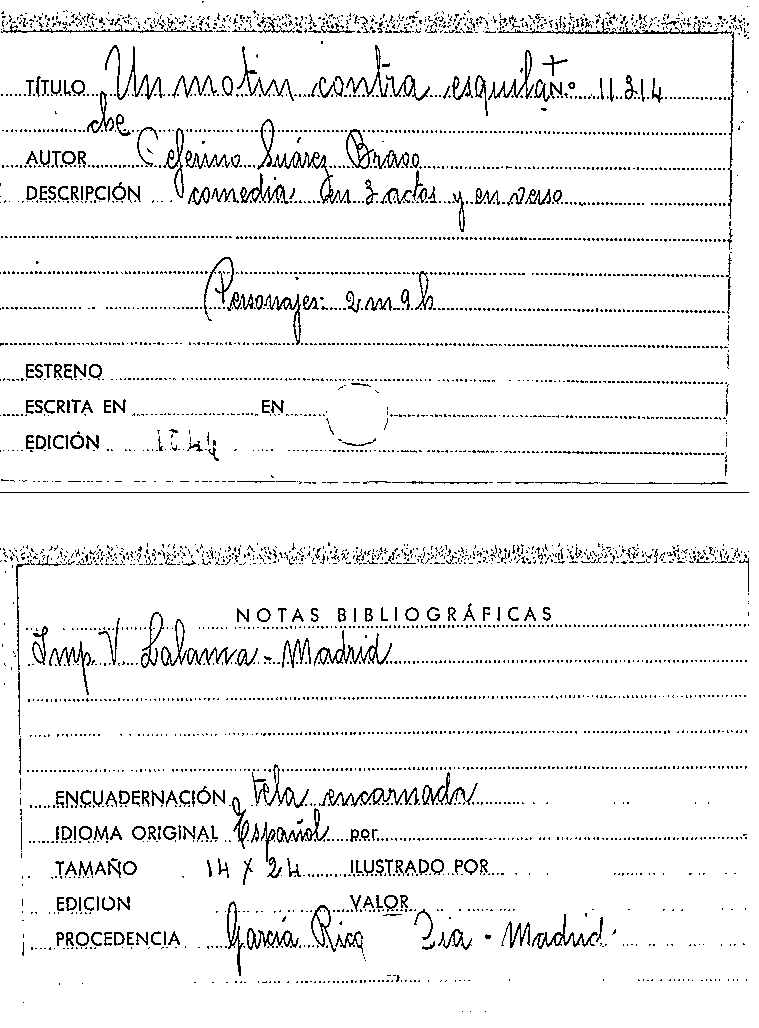 TÍTULO Un motin contra esquila Nº 11214
che
AUTOR Ceferino Suárez Bravo
DESCRIPCIÓN comedia en 3 actos y en verso
Personajes: 2 m 9 h
ESTRENO
ESCRITA EN EN
EDICIÓN
NOTAS BIBLIOGRÁFICAS
Imp. V. Lalama - Madrid
ENCUADERNACIÓN tela encarnada
IDIOMA ORIGINAL Español por
TAMAÑO 14 X 24 ILUSTRADO POR
EDICION VALOR
PROCEDENCIA García Rico - Madrid